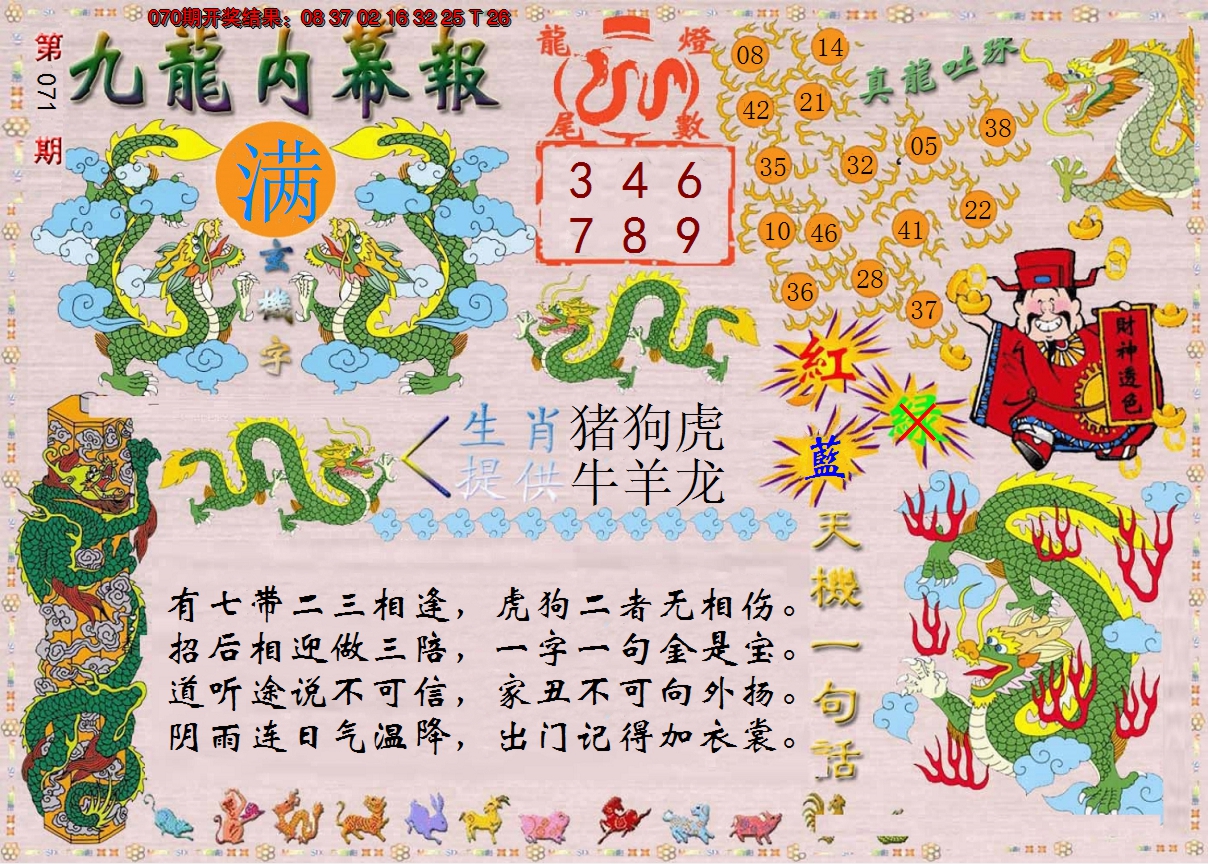 070期开奖结果：08 37 02 16 32 25 T 26
第071期
九龍内幕報
满
玄機字
龍燈尾數
3 4 6
7 8 9
真龍吐珠
08 14
42 21
35 32 05 38
10 46 41 22
36 28 37
財神透色
紅
绿
藍
生肖 猪狗虎
提供 牛羊龙
有七带二三相逢，虎狗二者无相伤。
招后相迎做三陪，一字一句金是宝。
道听途说不可信，家丑不可向外扬。
阴雨连日气温降，出门记得加衣裳。
天機一句話